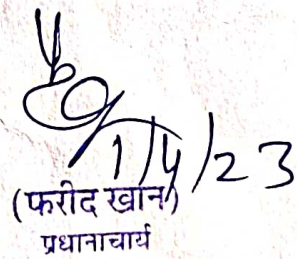 1/4/23
(फरीद खान)
प्रधानाचार्य